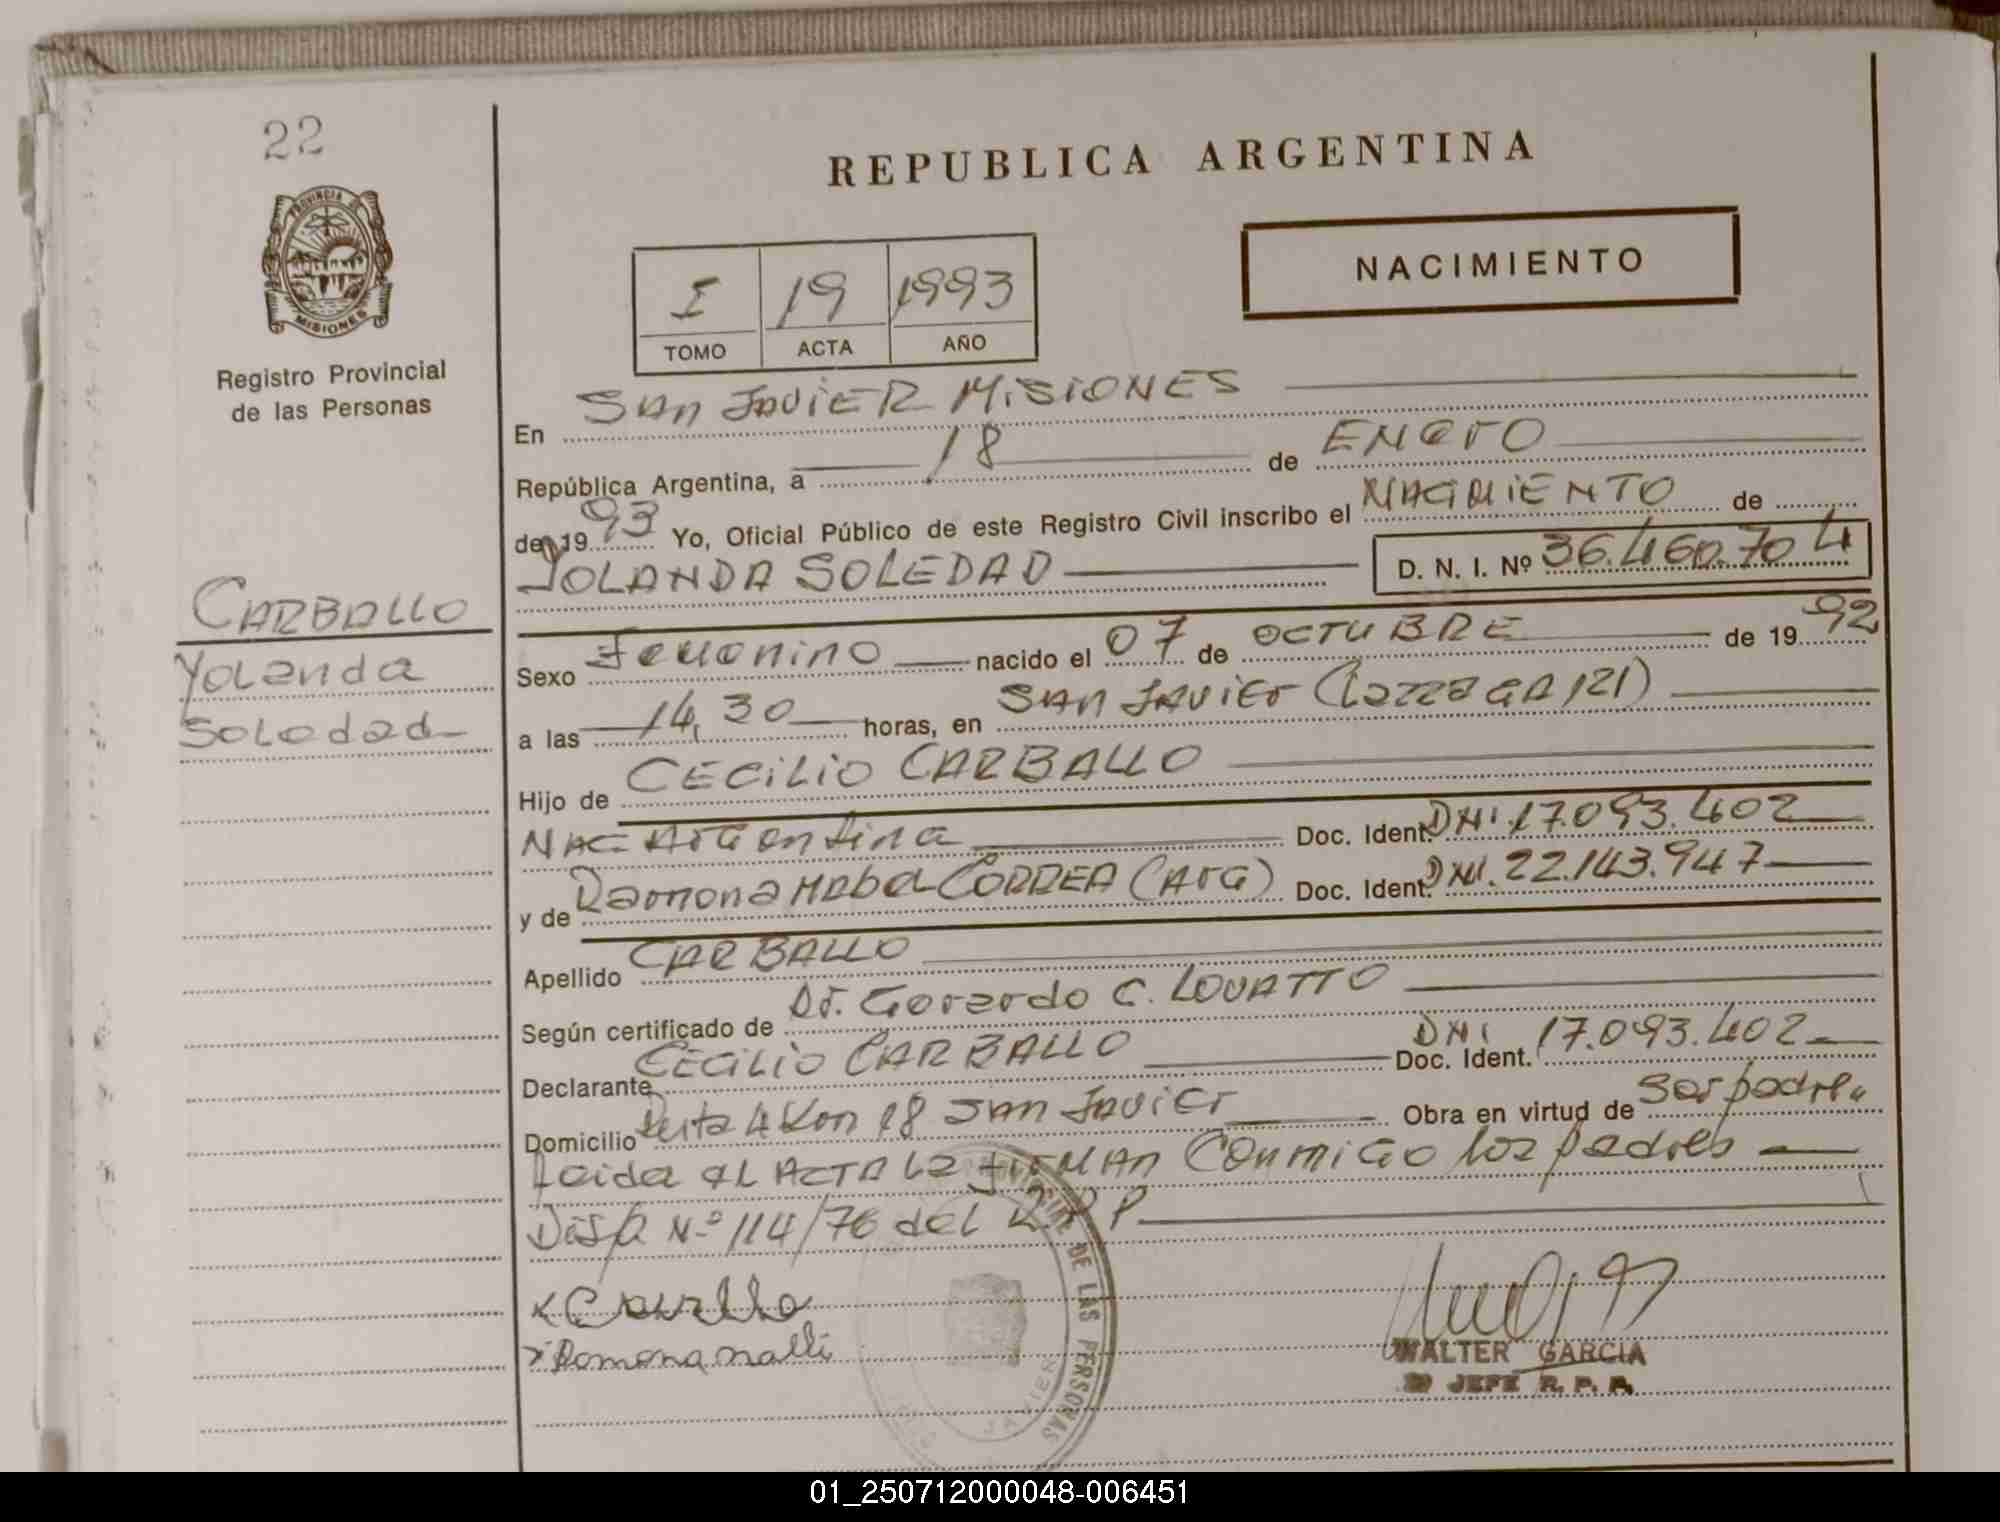 22
REPUBLICA ARGENTINA
NACIMIENTO
PROVINCIA DE MISIONES
Registro Provincial
de las Personas
I 19 1993
TOMO ACTA AÑO
En SAN JAVIER MISIONES
República Argentina, a 18 de ENERO
de 1993 Yo, Oficial Público de este Registro Civil inscribo el NACIMIENTO de
YOLANDA SOLEDAD D. N. I. Nº 36.460.704
CARBALLO
Yolanda
Soledad
Sexo Femenino nacido el 07 de OCTUBRE de 1992
a las 14,30 horas, en SAN JAVIER
Hijo de CECILIO CARBALLO
NAC Argentina Doc. Ident. DNI. 17.093.402
y de Ramona Mabel CORREA (Arg) Doc. Ident. DNI. 22.143.947
Apellido CARBALLO
Según certificado de Dr. Gerardo C. LOVATTO
Declarante CECILIO CARBALLO Doc. Ident. DNI 17.093.402
Domicilio Ruta 4 Km 18 SAN Javier Obra en virtud de Ser padre
Leida el ACTA la firman conmigo los padres
Disp. Nº 114/76 del R.P.P
DE LAS PERSONAS
JAVIER
WALTER GARCIA
JEFE R. P. P.
01_250712000048-006451